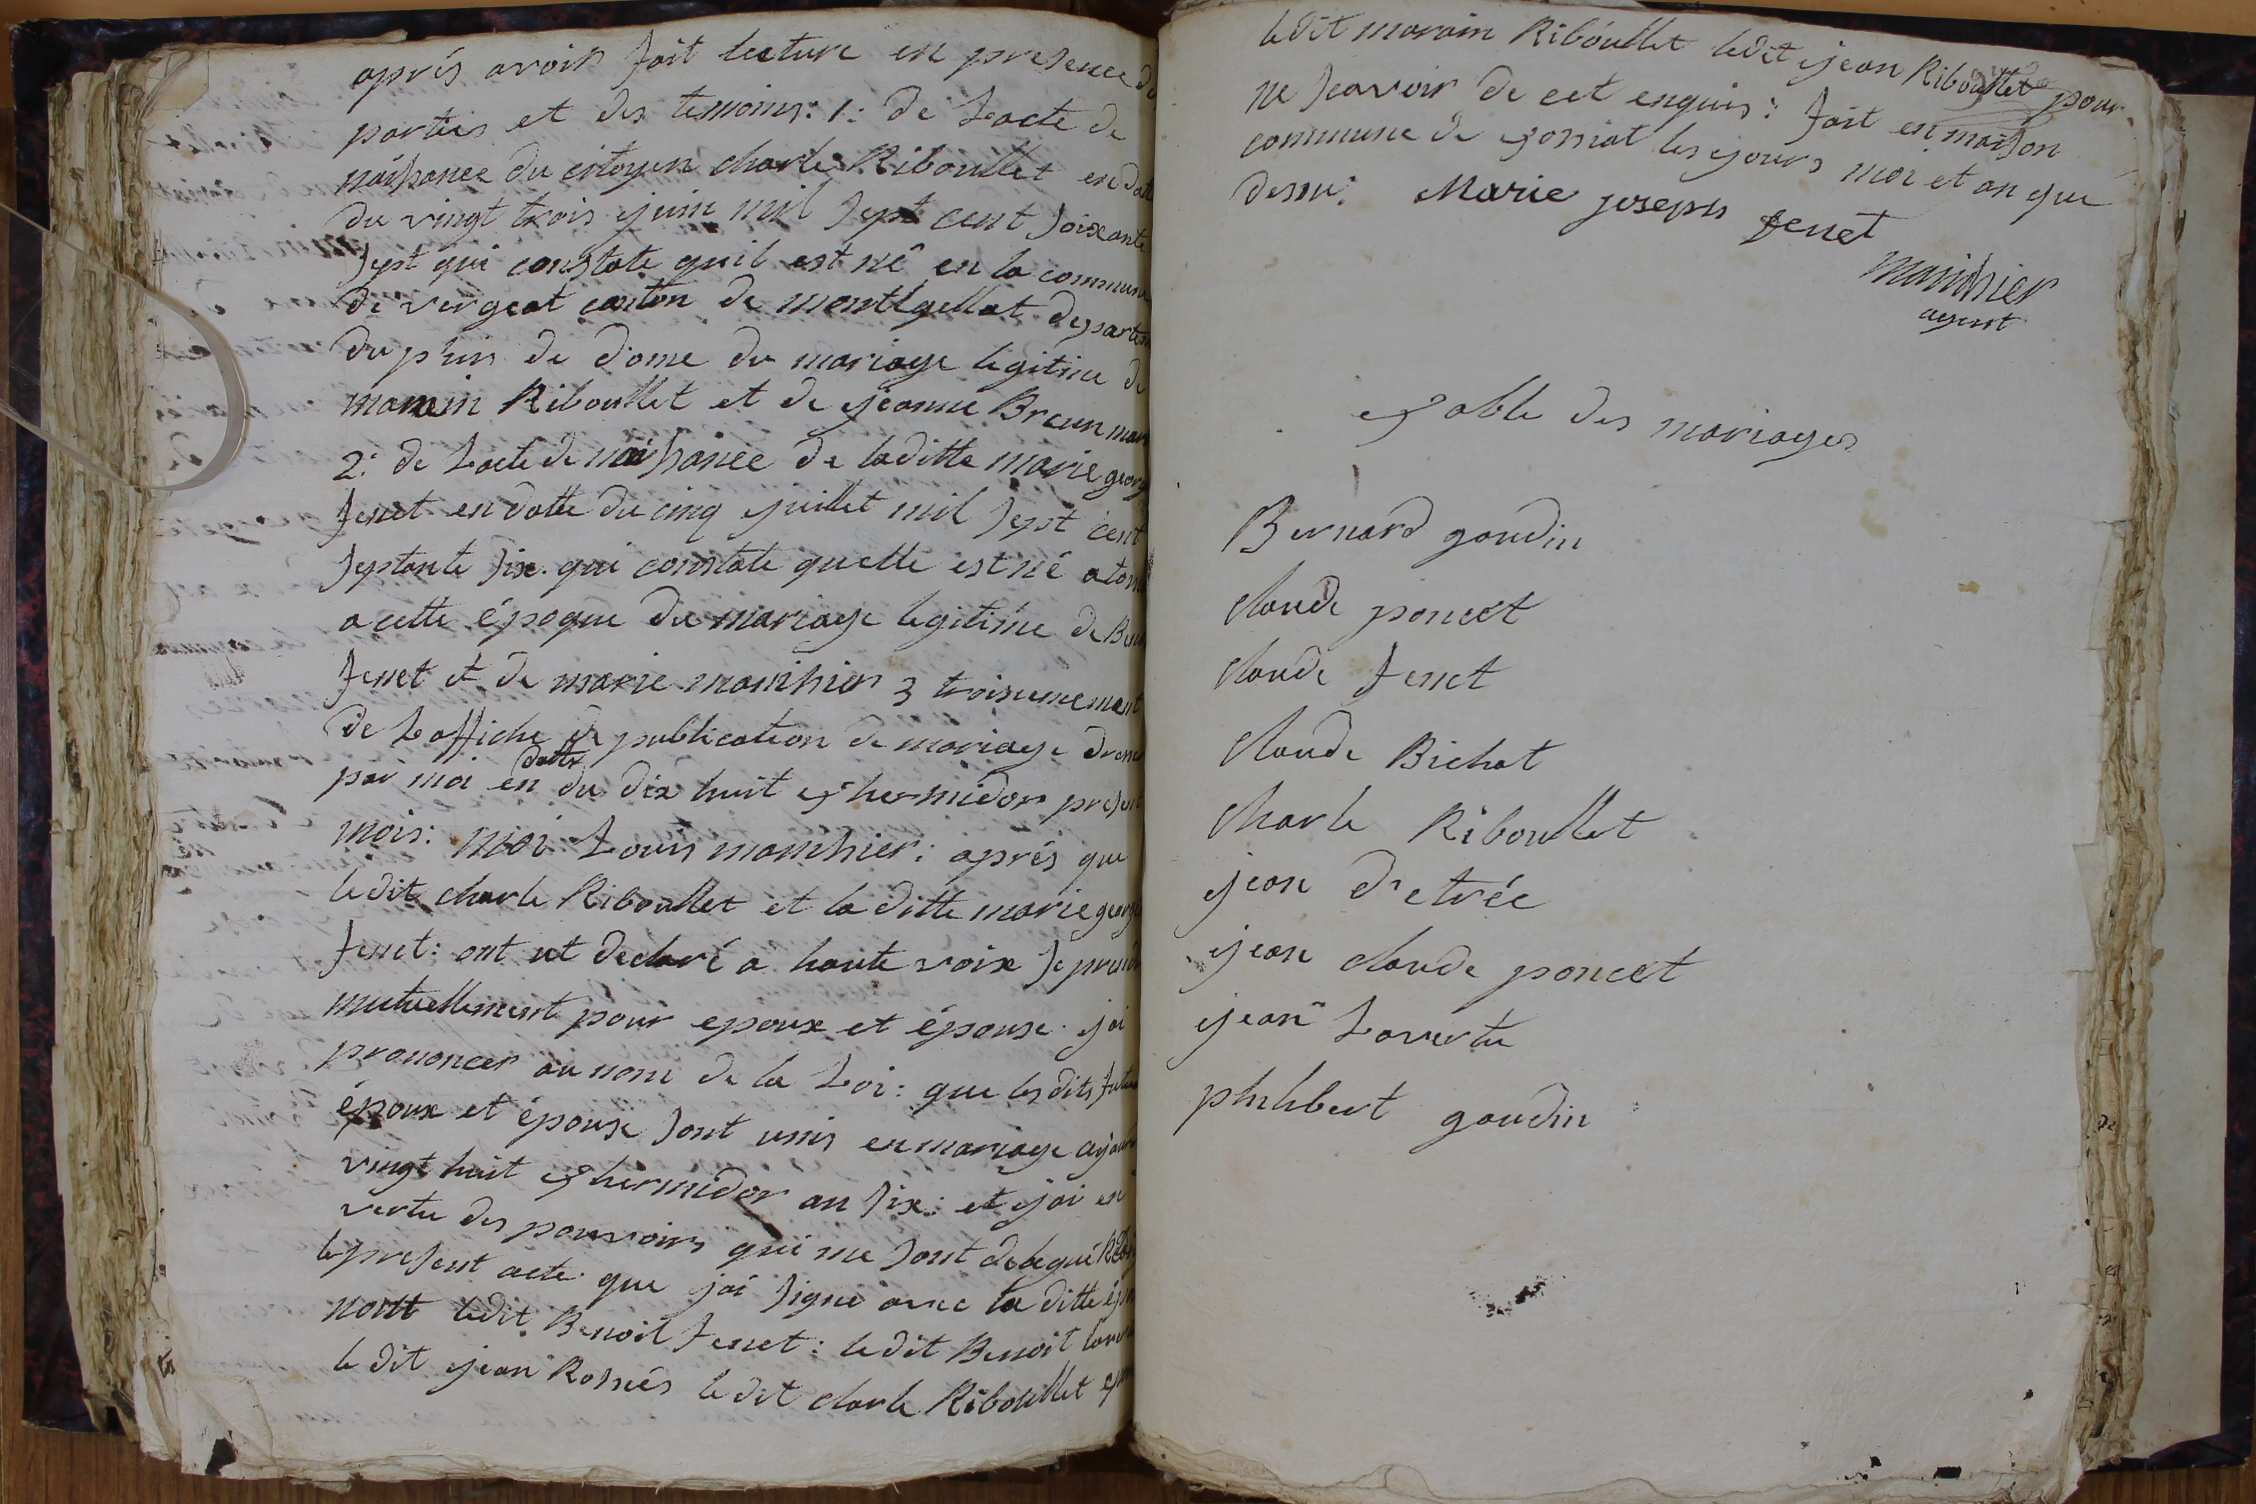 aprés avoir fait lecture en presence de
parties et des temoins: 1: de Lacte de
naissance du citoyen charle Riboullet en date
du vingt trois juin mil sept cent soixante
sept qui constate quil est né en la commune
de vergeat canton de montgellat departem
du phuis de dome du mariage legitime de
mamein Riboullet et de jeanne Breun
2: de Lacte de naissance de laditte marie georg
fenet en datte du cinq juillet mil sept cent
septante six. qui constate quelle est né
a cette époque du mariage legitime de
fenet et de marie mainhier 3 troisiemement
de Laffiche de publication de mariage
par moi en datte du dix huit thermidor present
mois: moi Louis mainhier: aprés que
ledit charle Riboullet et la ditte marie george
fenet: ont ut declaré a haute voix se prendr
mutuellement pour epoux et épouse. jai
prononcer au nom de la Loi: que les dits futu
époux et épouse sont unis en mariage
vingt huit thermidor an six: et jai en
vertu des pouvoirs qui me sont delegué
lepresent acte que jai signe avec la ditte
nont ledit Benoit fenet: ledit Benoit
le dit jean Rossiés ledit charle Riboullet
ledit mamin Riboullet ledit jean Riboullet pour
ne scavoir de cet enquis: fait en maison
commune de jossiat les jours moi et an que
dessu: Marie joseph fenet
mainhier
agent
table des mariages
Bernard goudin
claude poncet
claude fenet
claude Bichat
charle Riboullet
jean detrée
jean claude poncet
jean Lavertu
philibert goudin